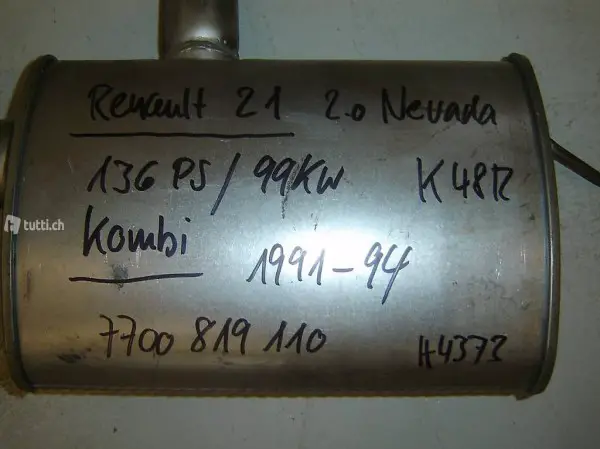 Renault 21 2.0 Nevada
136 PS / 99KW K48R
Kombi
1991-94
7700 819 110 H4373
tutti.ch